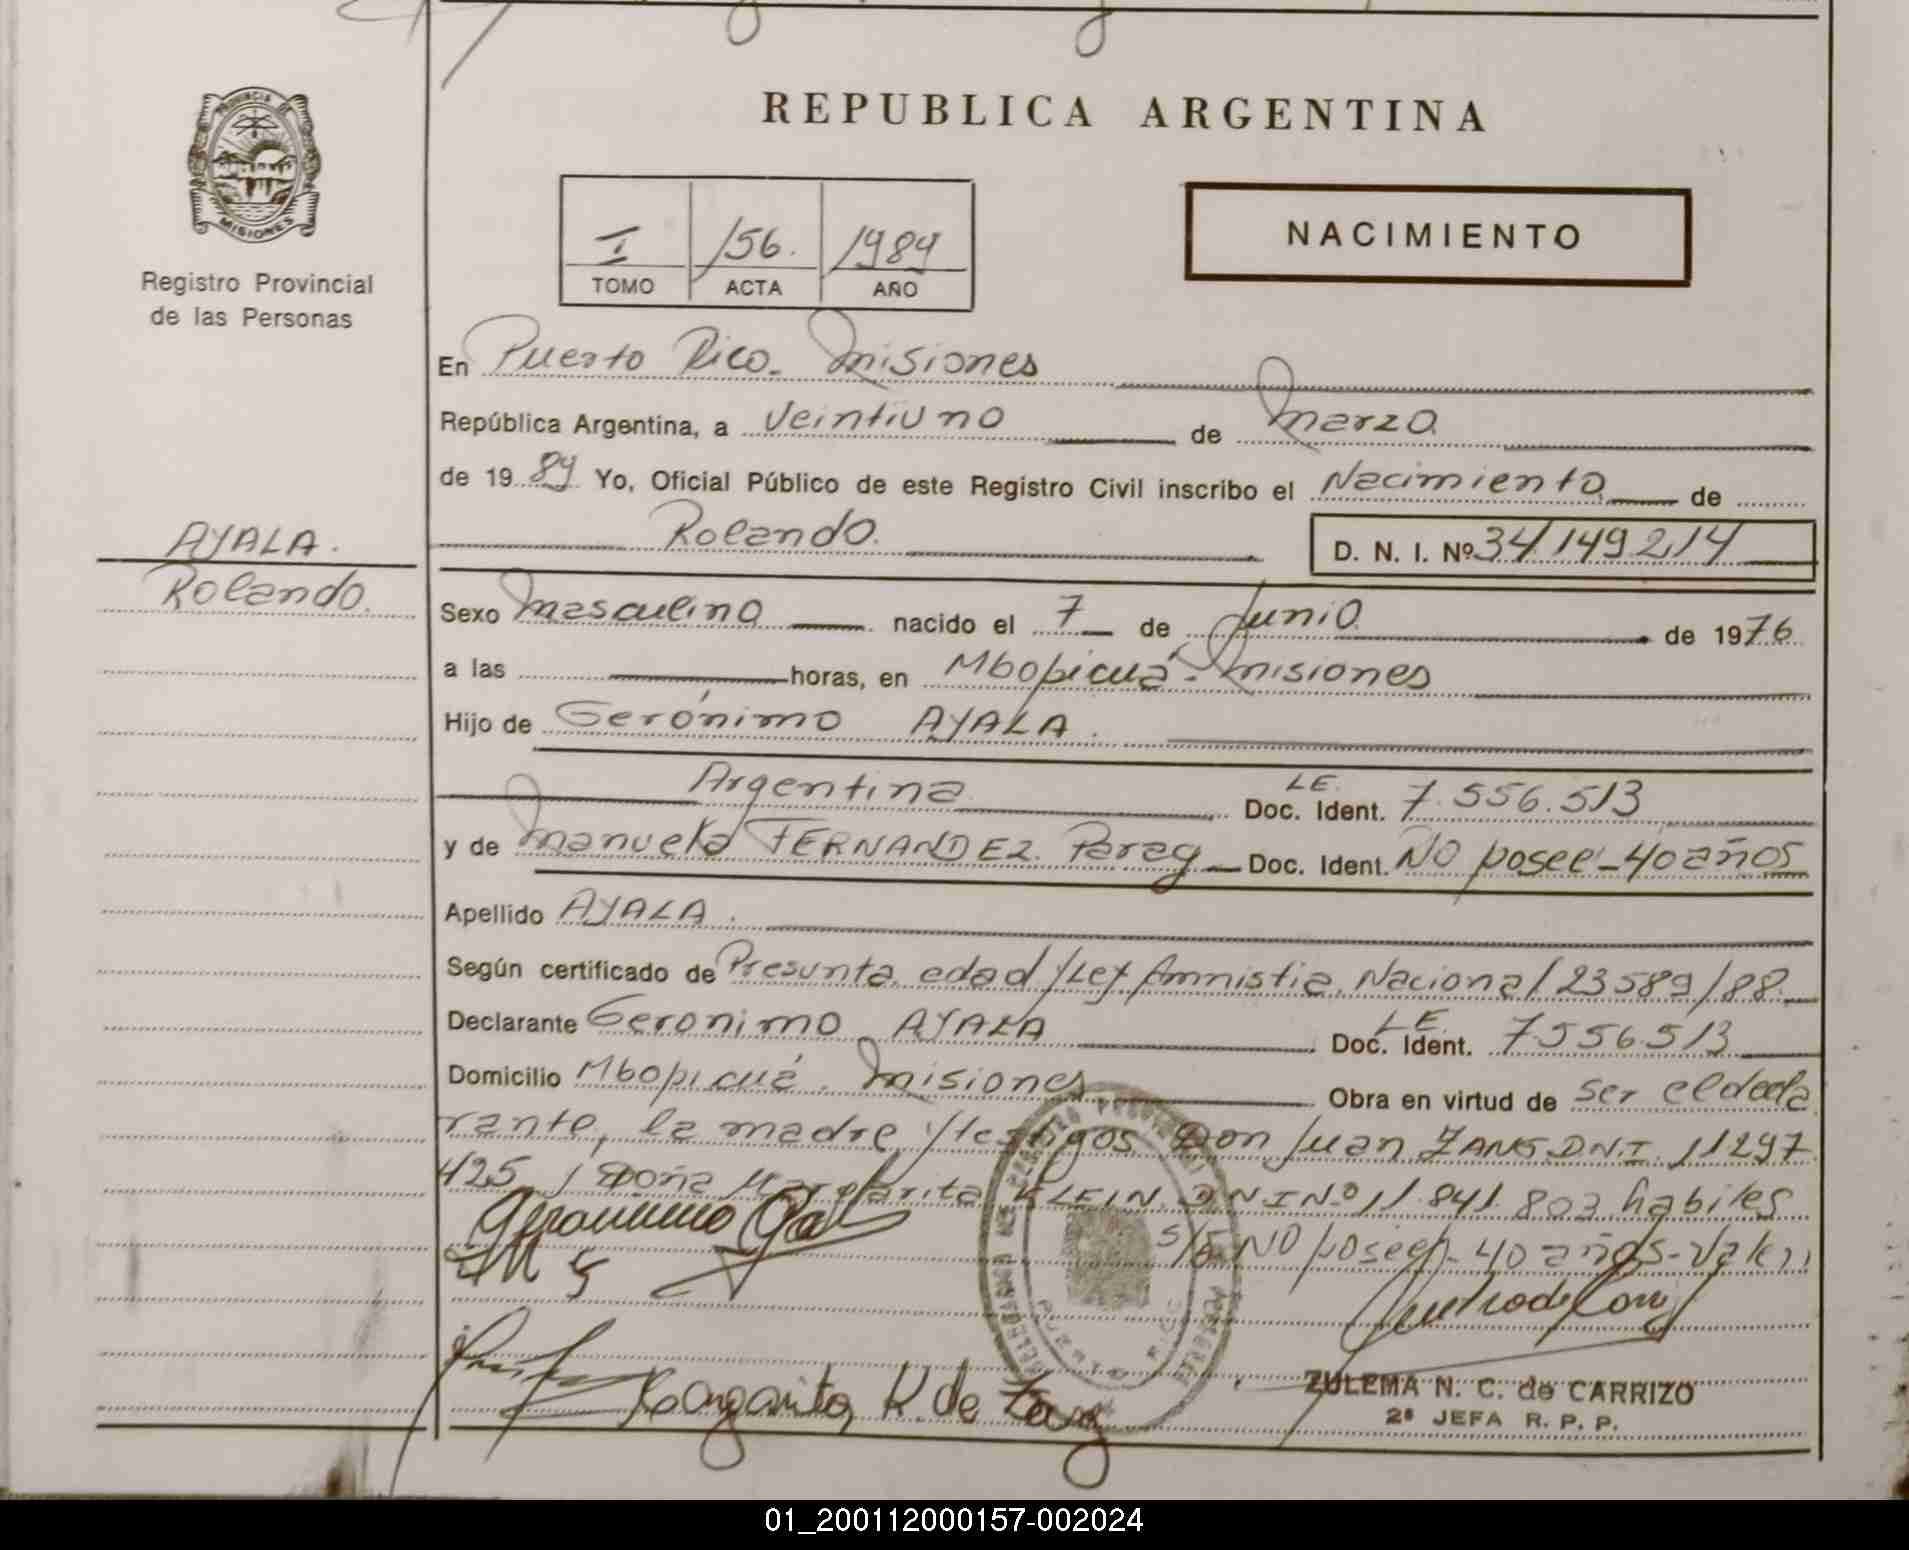 REPUBLICA ARGENTINA
PROVINCIA DE
MISIONES
Registro Provincial
de las Personas
I 156. 1989
TOMO ACTA AÑO
NACIMIENTO
En Puerto Rico. Misiones
República Argentina, a Veintiuno de Marzo
de 1989 Yo, Oficial Público de este Registro Civil inscribo el Nacimiento de
Rolando.
D. N. I. Nº 34.149.214
AYALA.
Rolando.
Sexo Masculino nacido el 7 de Junio de 1976
a las horas, en Mbopicuá. Misiones
Hijo de Gerónimo AYALA.
Argentina LE. Doc. Ident. 7.556.513
y de Manuela FERNANDEZ. Parag Doc. Ident. NO posee-40 años
Apellido AYALA.
Según certificado de Presunta edad y Ley Amnistia Nacional 23589/88
Declarante Geronimo AYALA L.E. Doc. Ident. 7556513
Domicilio Mbopicuá. Misiones Obra en virtud de ser el decla
rante, la madre y testigos Don Juan ZANG D.N.I. 11297
425 y Doña Margarita KLEIN, D.N.I Nº 11.841.803 habiles
S/E NO poseen-40 años-Valen
Margarita K. de Zang
ZULEMA N. C. de CARRIZO
2ª JEFA R. P. P.
01_200112000157-002024